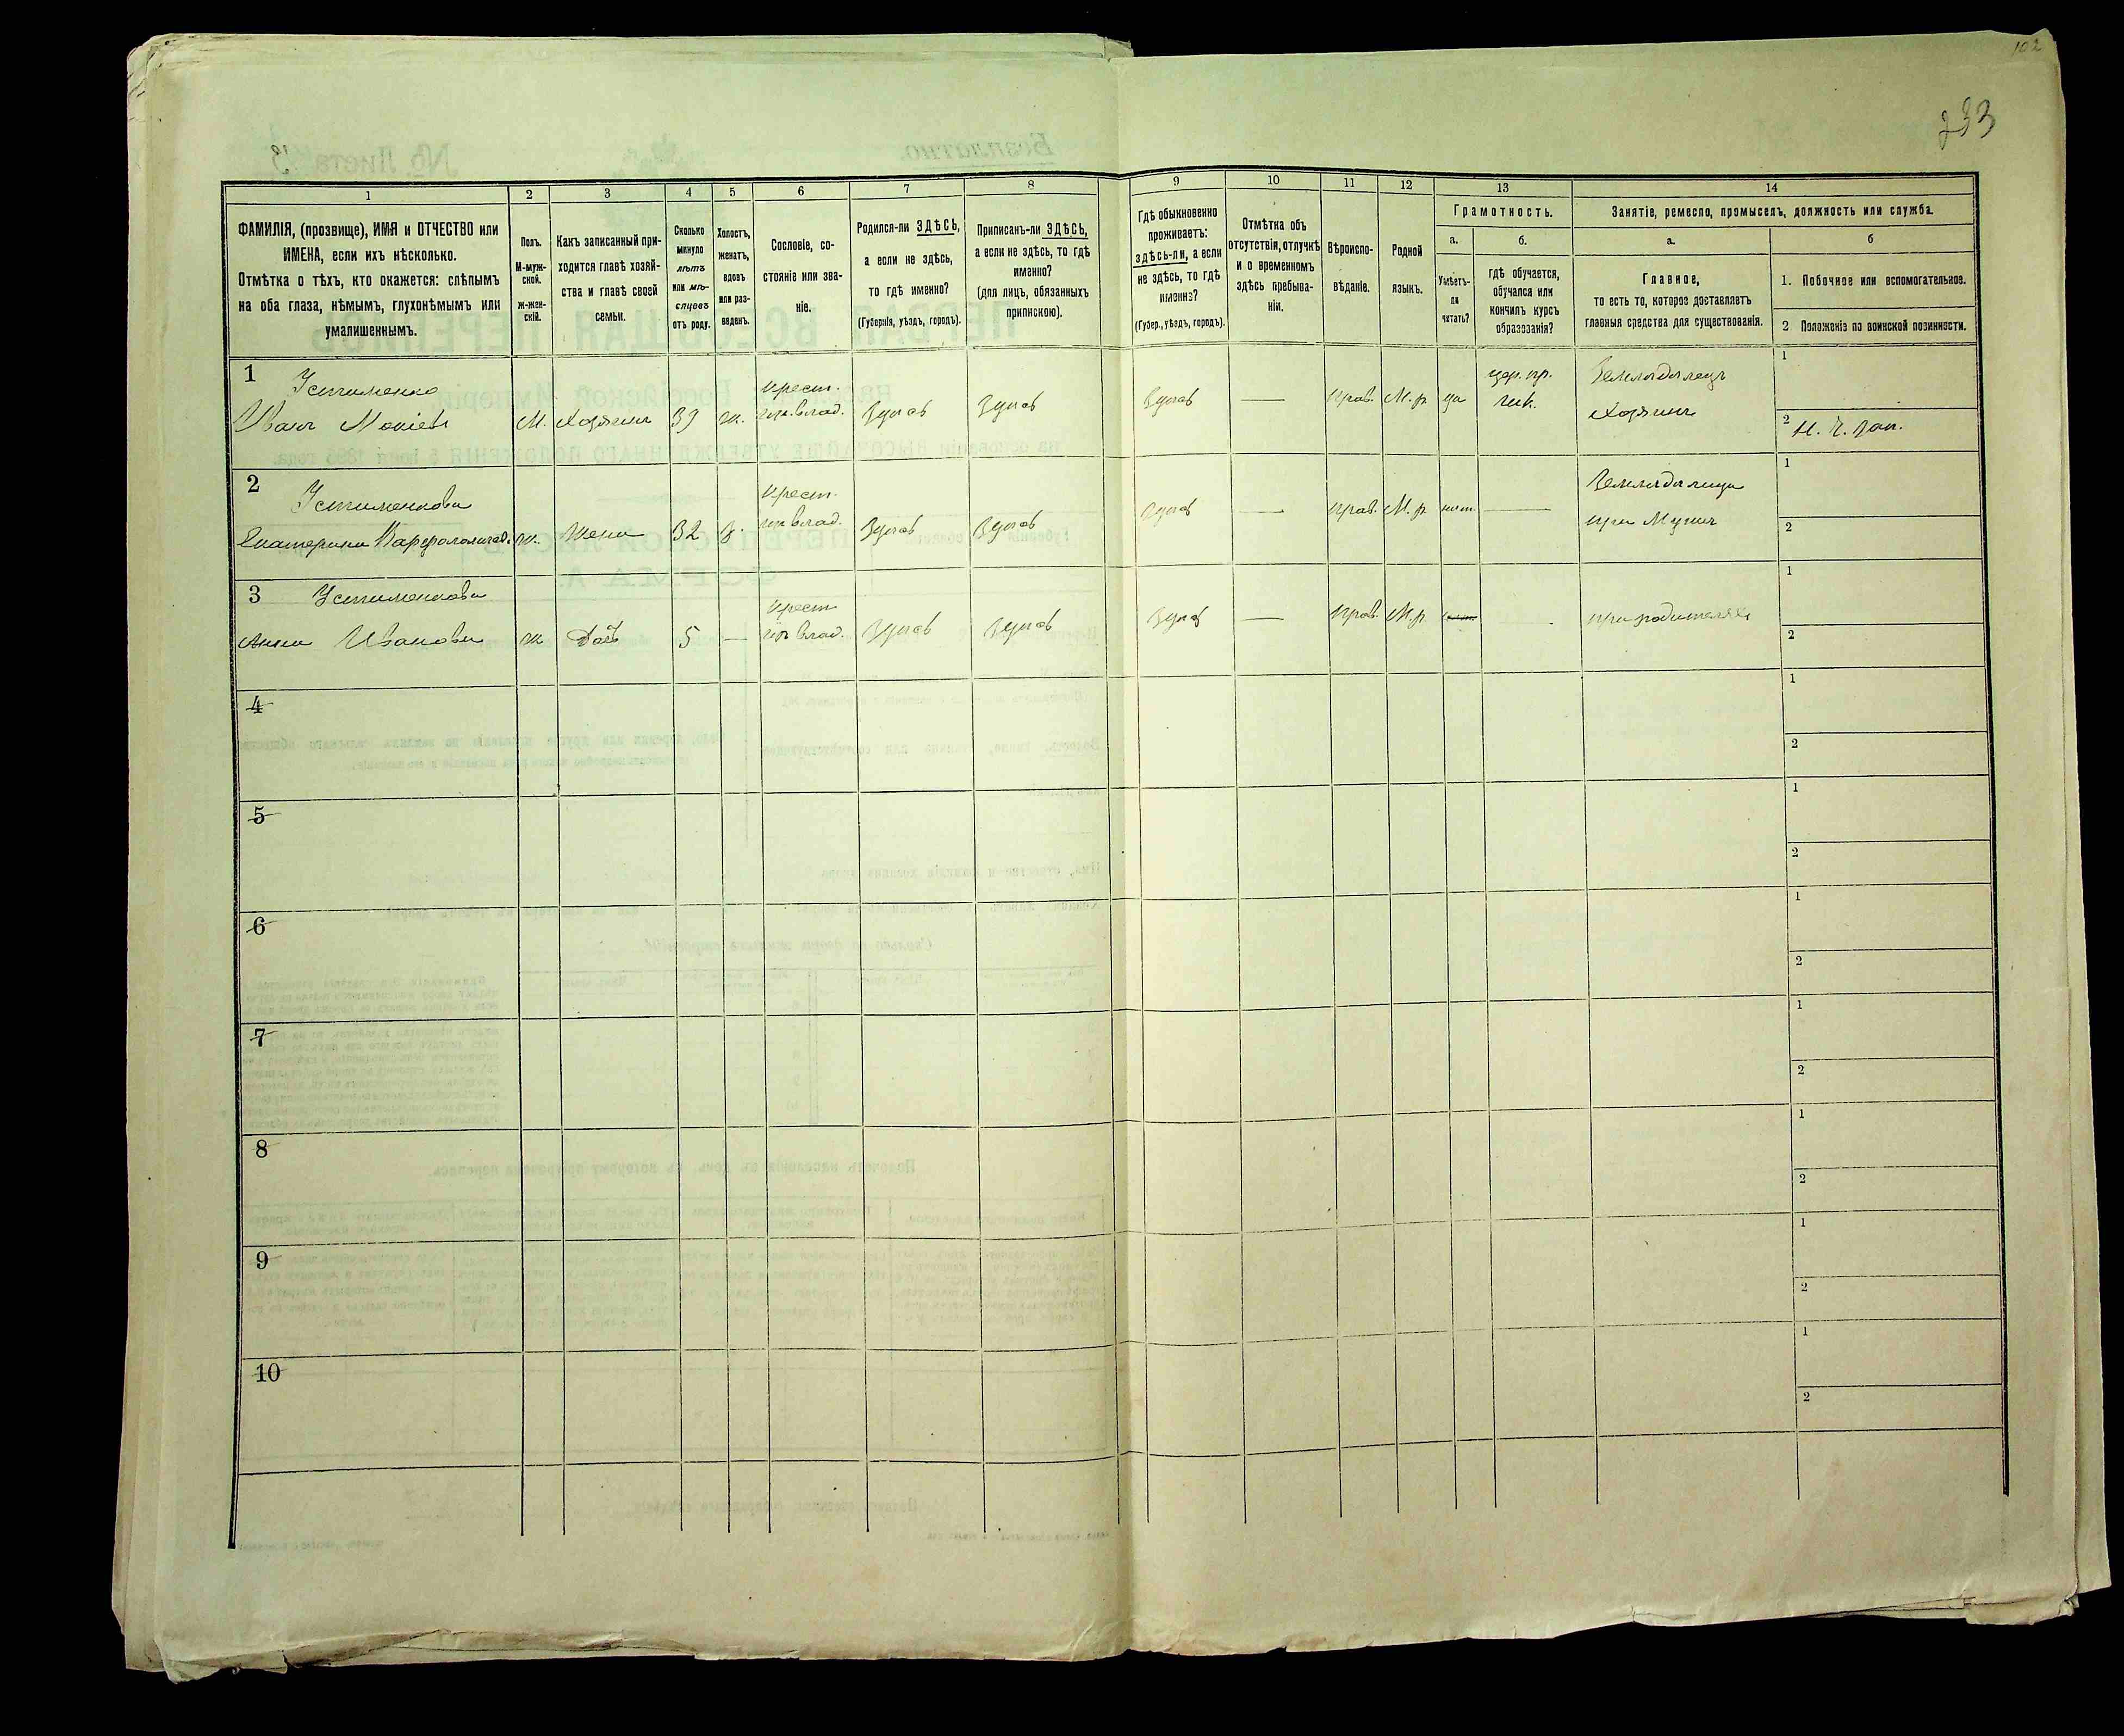 102
233
1
2
3
4
5
6
7
8
9
10
11
12
13
14
ФАМИЛІЯ, (прозвище), ИМЯ и ОТЧЕСТВО или
ИМЕНА, если ихъ нѣсколько.
Отмѣтка о тѣхъ, кто окажется: слѣпымъ
на оба глаза, нѣмымъ, глухонѣмымъ или
умалишеннымъ.
Полъ.
М-муж-
ской.
ж-жен-
скій.
Какъ записанный при-
ходится главѣ хозяй-
ства и главѣ своей
семьи.
Сколько
минуло
лѣтъ
или мѣ-
сяцевъ
отъ роду.
Холостъ,
женатъ,
вдовъ
или раз-
веденъ.
Сословіе, со-
стояніе или зва-
ніе.
Родился-ли ЗДѢСЬ,
а если не здѣсь,
то гдѣ именно?
(Губернія, уѣздъ, городъ).
Приписанъ-ли ЗДѢСЬ,
а если не здѣсь, то гдѣ
именно?
(для лицъ, обязанныхъ
припискою).
Гдѣ обыкновенно
проживаетъ:
здѣсь-ли, а если
не здѣсь, то гдѣ
именно?
(Губер., уѣздъ, городъ).
Отмѣтка объ
отсутствіи, отлучкѣ
и о временномъ
здѣсь пребыва-
ніи.
Вѣроиспо-
вѣданіе.
Родной
языкъ.
Грамотность.
а.
Умѣетъ-
ли
читать?
б.
гдѣ обучается,
обучался или
кончилъ курсъ
образованія?
Занятіе, ремесло, промыселъ, должность или служба.
а.
Главное,
то есть то, которое доставляетъ
главныя средства для существованія.
б
1. Побочное или вспомогательное.
2 Положеніе по воинской повинности.
1
Устименко
Иванъ
М.
Хозяинъ
39
ж.
крест.
влад.
Здѣсь
Здѣсь
Здѣсь
—
прав.
М.р.
да
цер. пр.
Земледѣлецъ
Хозяинъ
1
2
2
Устименкова
Екатерина
ж.
Жена
32
з.
крест.
влад.
Здѣсь
Здѣсь
Здѣсь
—
прав.
М.р.
нѣт.
—
Земледѣлица
при мужѣ
1
2
3
Устименкова
Анна Иванова
ж
Доч
5
—
крест
влад.
Здѣсь
Здѣсь
Здѣсь
—
прав.
М.р.
при родителяхъ
1
2
4
1
2
5
1
2
6
1
2
7
1
2
8
1
2
9
1
2
10
1
2